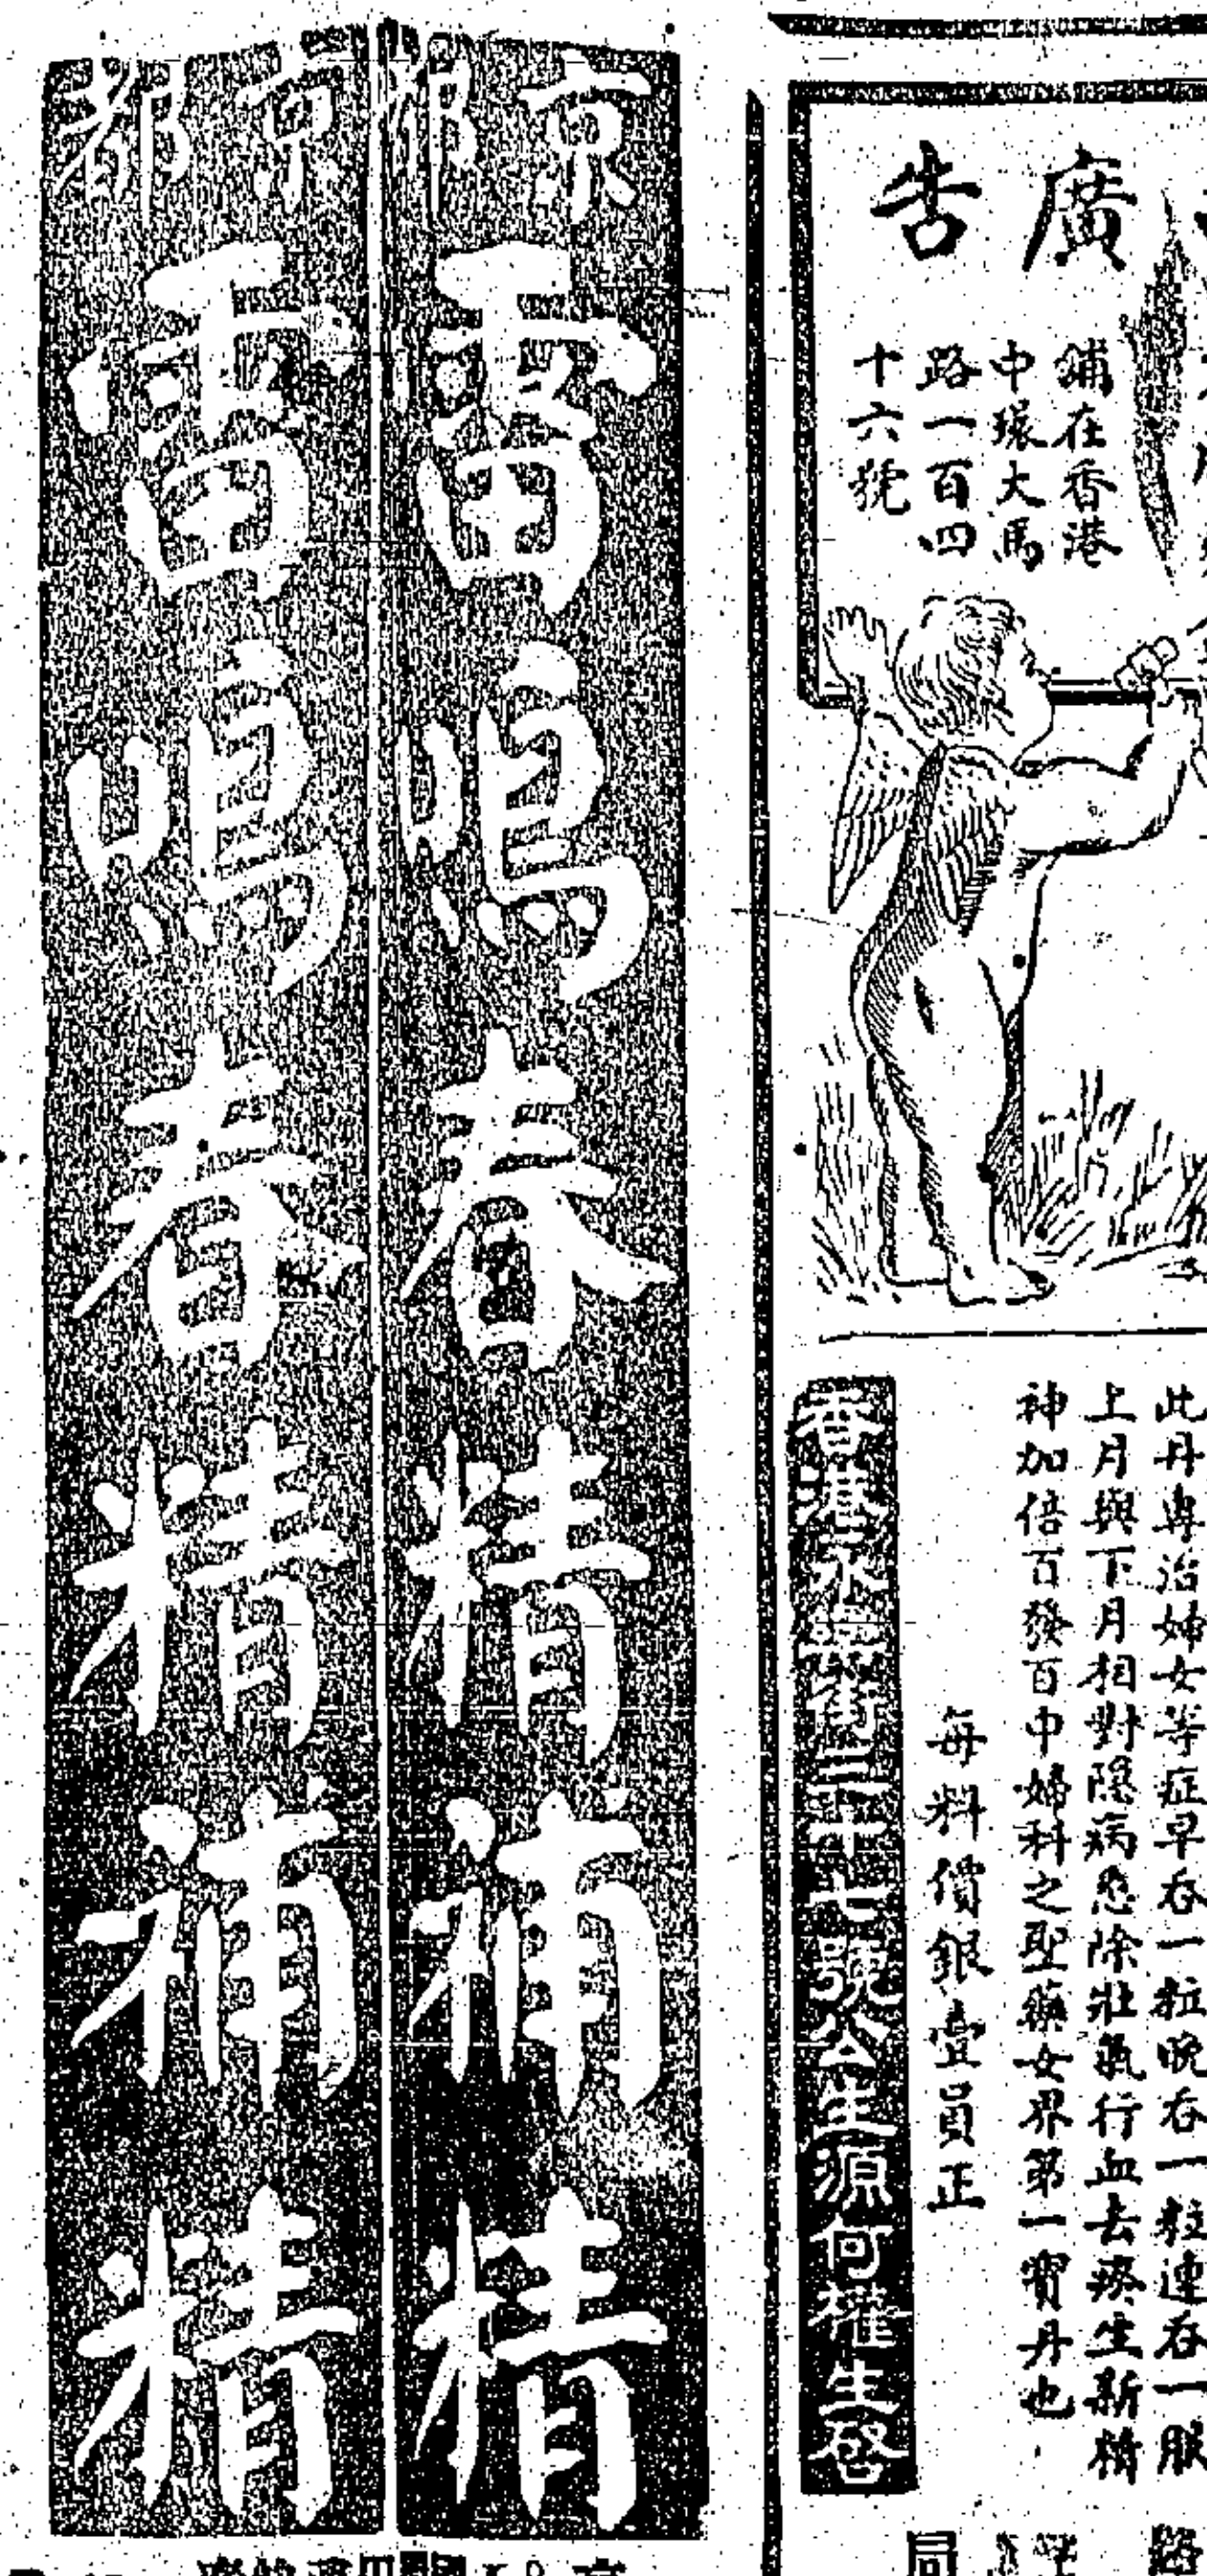 廣告
鋪在香港
中環大馬
路一百四
十六號
此丹專治婦女等症早吞一粒晚吞一粒連吞一服
上月與下月相對隱病忽除壯氣行血去瘀生新精
神加倍百發百中婦科之聖藥女界第一寶丹也
每料價銀壹員正
香港永樂街三十七號公生源何權生啓
京都
雷鳴春精補精
京都
雷鳴春精補精